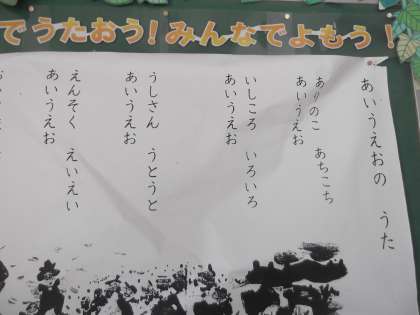 でうたおう！みんなでよもう！
あいうえおの　うた
ありのこ　あちこち
あいうえお
いしころ　いろいろ
あいうえお
うしさん　うとうと
あいうえお
えんそく　えいえい
あいうえお